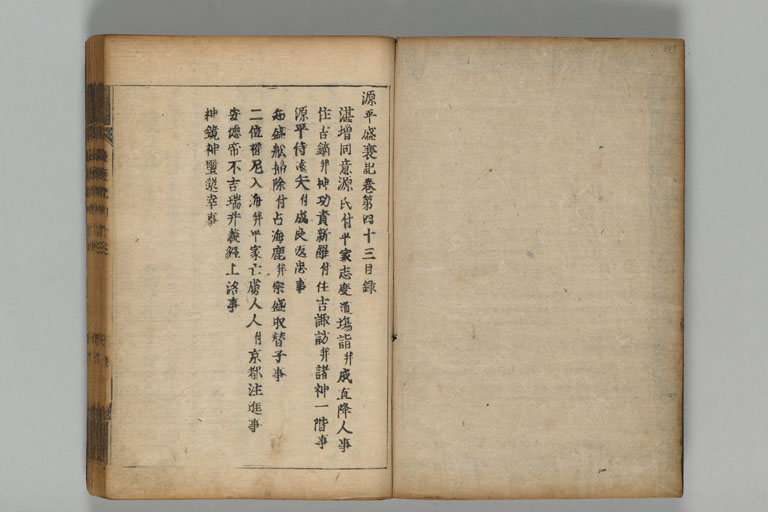 源平盛衰記巻第四十三目録
湛増同意源氏付平家志度道場詣并成直降人事
住吉鏑并神功責新羅付住吉諏訪并諸神一階事
源平侍遠矢付成良返忠事
知盛舩掃除付占海鹿并宗盛取替子事
二位禅尼入海并平家亡虜人人付京都注進事
安徳帝不吉瑞并義経上洛事
神鏡神璽還幸事